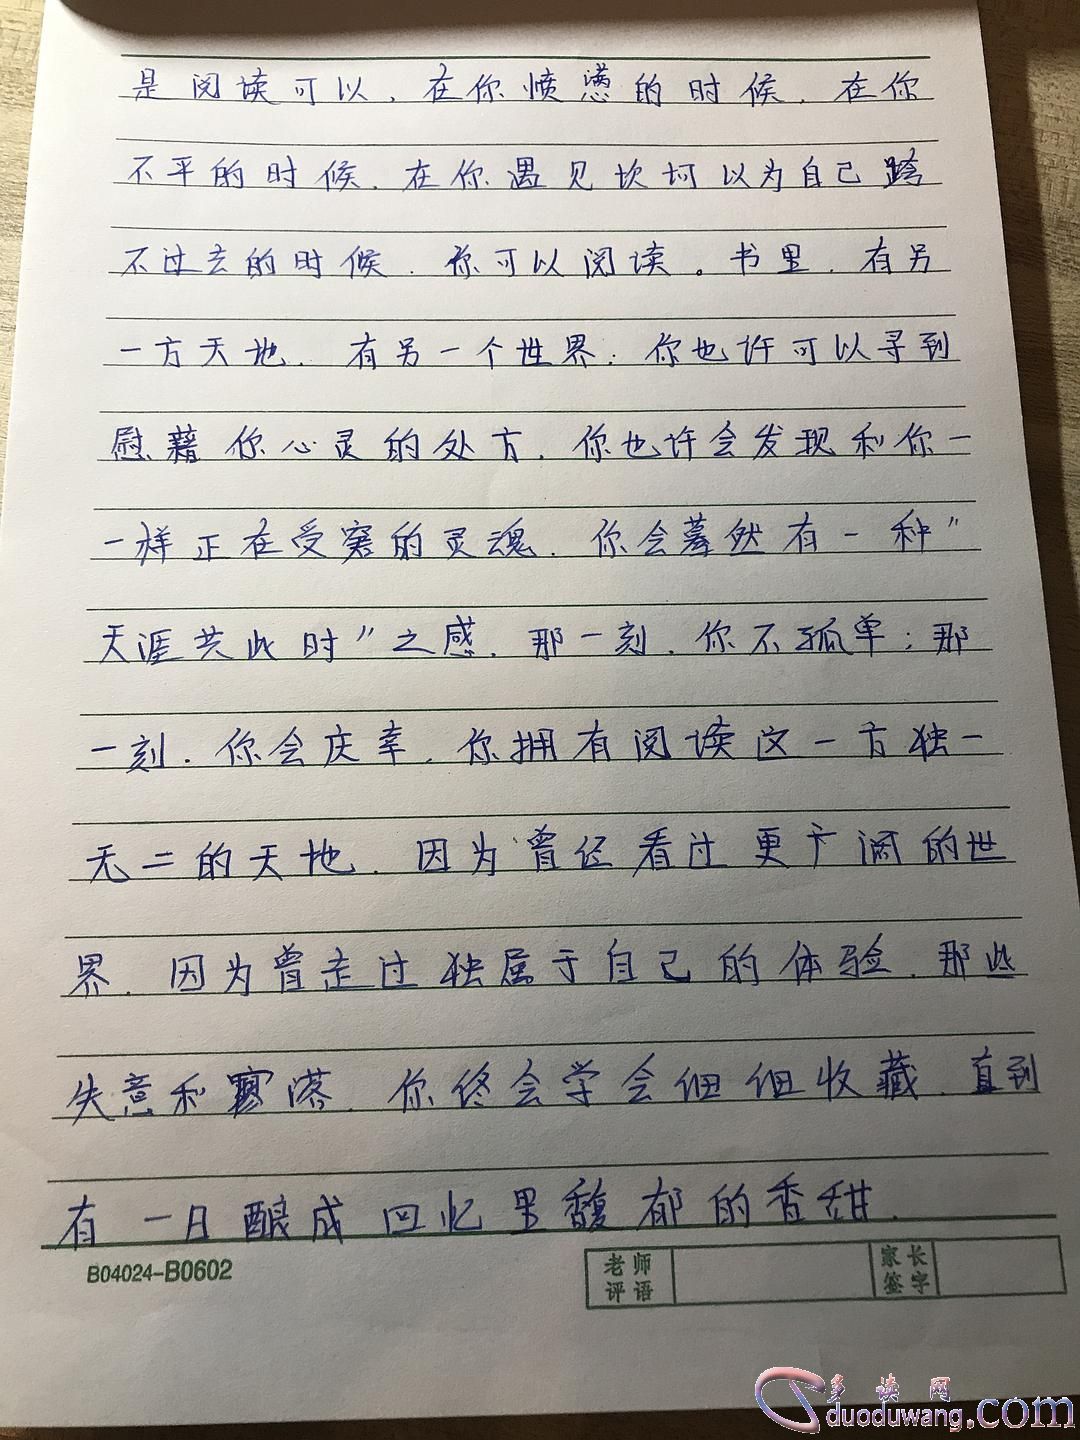 是阅读可以，在你愤懑的时候，在你
不平的时候，在你遇见坎坷以为自己跨
不过去的时候，你可以阅读。书里，有另
一方天地，有另一个世界，你也许可以寻到
慰藉你心灵的处方，你也许会发现和你一
一样正在受窘的灵魂，你会蓦然有一种"
天涯共此时"之感，那一刻，你不孤单；那
一刻，你会庆幸，你拥有阅读这一方独一
无二的天地，因为曾经看过更广阔的世
界，因为曾走过独属于自己的体验，那些
失意和寥落，你终会学会细细收藏，直到
有一日酿成回忆里馥郁的香甜.
B04024-B0602
老师评语
家长签字
多读网
duoduwang.com